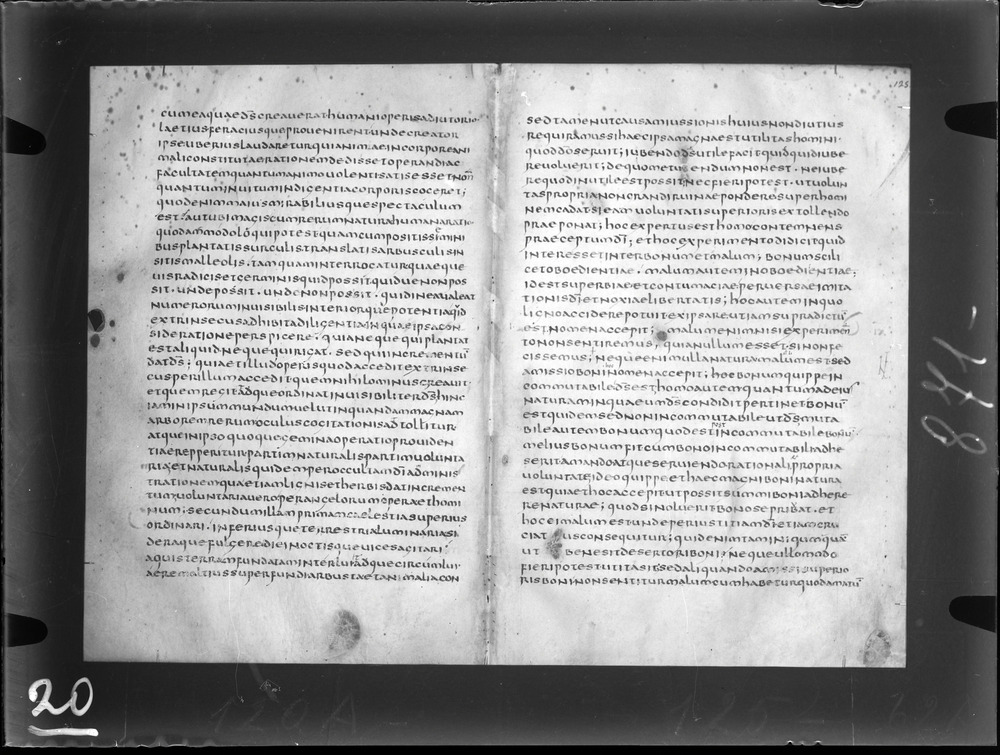 cumeaquaed̄screaveráthumanioperisadiutorio
laetiusferaciusqueprovenirentundecreator
ipseuberiuslaudareturquianimaeincorporeani
maliconstitutaerationemdedissetoperandiac
facultatemquantumanimovolentisatisessetnoń
quantuminvitumindigentiacorporiscogeret;
quodenimmaiusmirabiliusquespectaculum
est·autubimagiscumrerumnaturahumanaratio
quodam̄modoloquipotestquamcumpositisseminib·
busplantatissurculistranslatisarbusculisin
sitismalleolis·tamquaminterrogaturquaeque
visradicisetgerminisquidpossitquidvenonpos
sit·undepossit·undenonpossit·quidineavaleat
numeroruminvisibilisinteriorquepotentiaquid
extrinsecusadhibitadiligentiainquaeipsacon
siderationeperspicere·quianequequiplantat
estaliquidnequequirigat·sedquiincrementū
datd̄s;quiaetilludoperisquodacceditextrinse
cusperillumacceditquemnihilominuscreavit·
etquemregitadqueordinatinvisibiliterd̄shinc
iaminipsummundumvelutinquandammagnam
arboremrerumoculuscogitationisadtollitur
atqueinipsoquoquegeminaoperatioproviden
tiaerepperiturpartimnaturalispartimvolunta
riaetnaturalisquidemperoccultamd̄iadminis
trationemquaetiamlignisetherbisdatincremen
tumvoluntariaveroperangelorumoperaethomi
num;secundumillamprimamcaelestiasuperius
ordinari·inferiusqueterrestrialuminariasi
deraquefulgerediēinoctisquevicesagitari
aquisterramfundataminterluiadquecircumlui
aeremaltiussuperfundiarbustaetanimaliacon
125
sedtamenutcausamiussionishuiusnondiutius
requiramussihaecipsamagnaestutilitashomini
quoddōseruit;iubendod̄sutilefacitquidquidiube
revoluerit;dequometuendumnonest·neiube
requodinutileestpossitnecfieripotest·utvolun
taspropriangrandiruinaeponderesuperhomi
nemcadatsieamvoluntatisuperiorisextollendo
praeponat;hocexpertusesthomocontemnens
praeceptumd̄i;ethocexperimentodidicitquid
interessetinterbonumetmalum;bonumscili
cetoboedientiae·malumauteminoboedientiae;
idestsuperbiaeetcontumaciaeperversaeimita
tionisd̄ietnoxiaelibertatis;hocauteminquo
lignoaccidere potuitexipsareutiamsupradictū
estnomenaccepit;malumenimnisiexperimen
tononsentiremus·quianullumessetsinonfe
cissemus;nequeenimullanaturamalumestsed
amissiobonihocnomenaccepit;hocbonumquippein
commutabiled̄sesthomoautemquantumadeius
naturaminquaeumd̄scondiditpertinetbonū
estquidemsednonincommutabileutd̄smuta
bileautembonumquodestpostincommutabilebonū
meliusbonumfitcumbonoincommutabiliadhe
seritamandoatqueserviendorationalipropria
voluntateideoquippeethaecmagniboninatura
estquiaethocaccepitutpossitsummiboniadhere
renaturae;quodsinolueritbonoseprivat·et
hoceimalumestundeperiustitiamd̄ietiamcru
ciatusconsequitur;quidenimtaminiquumquā
utbenesitdesertoriboni;nequeullomodo
fieripotestutitasitsedaliquandoamissisuperio
risboninonsentiturmalumcumhabeturquodamatū
871-
20